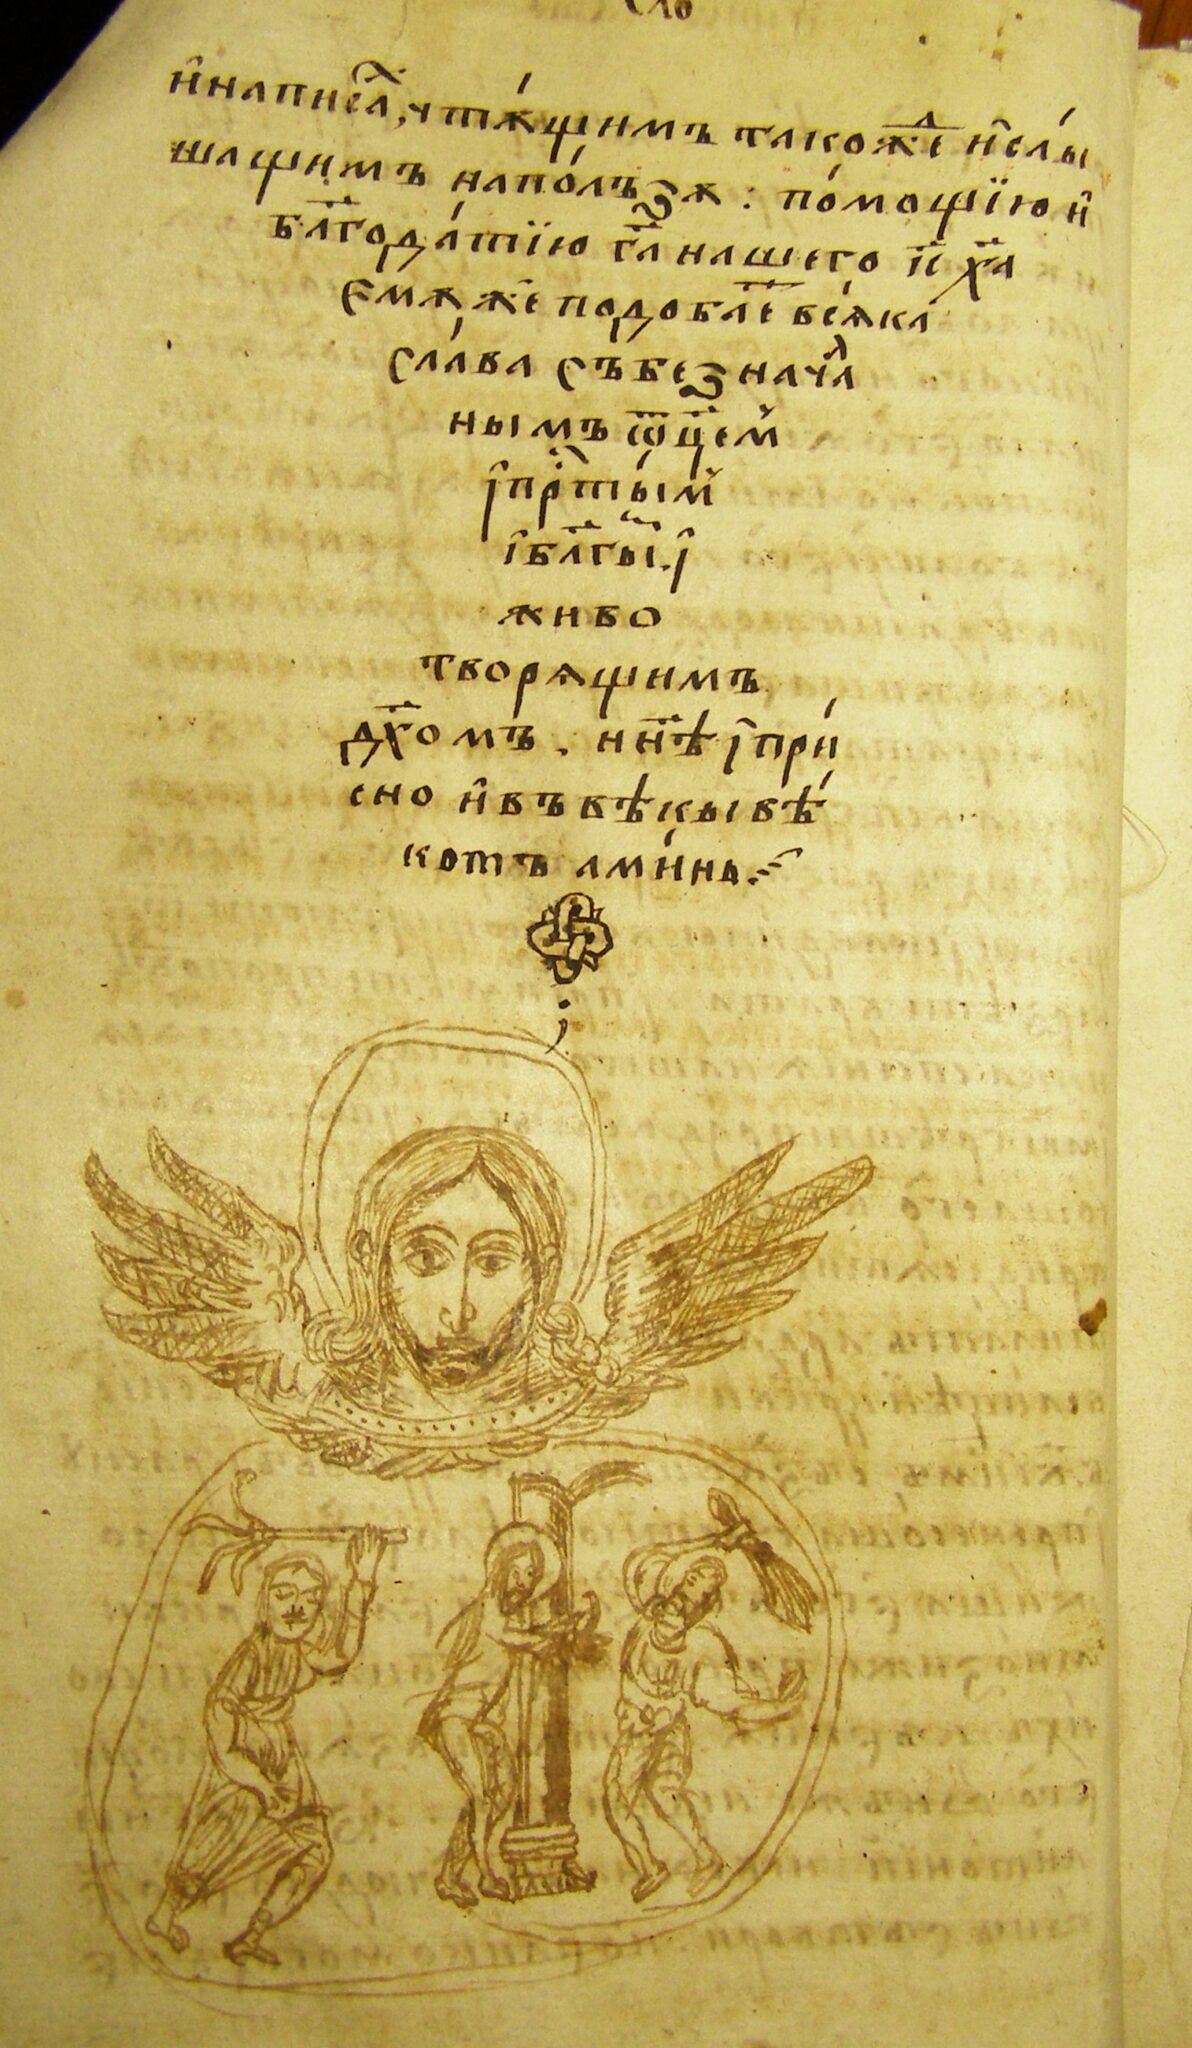 и҆написа̑, чтѫ́щимъ такоже҆ и҆слы́
шащимъ напо́лъзѫ : по́мощїю и҆
бл҃года́тїю га҃ нашего і҃с ха҃
Ємѫже҆ подобае҃ всѧ́ка
сла́ва съ безнача
нымъ ѿц҃ем
і҆пр҃ты́м
і҆бл҃гы́и. і҆
живо
творѧщимъ
дх҃омъ. нн҃ѣ і҆при́
сно и҆въ вѣкы вѣ́
кѡтъ ами́нь.